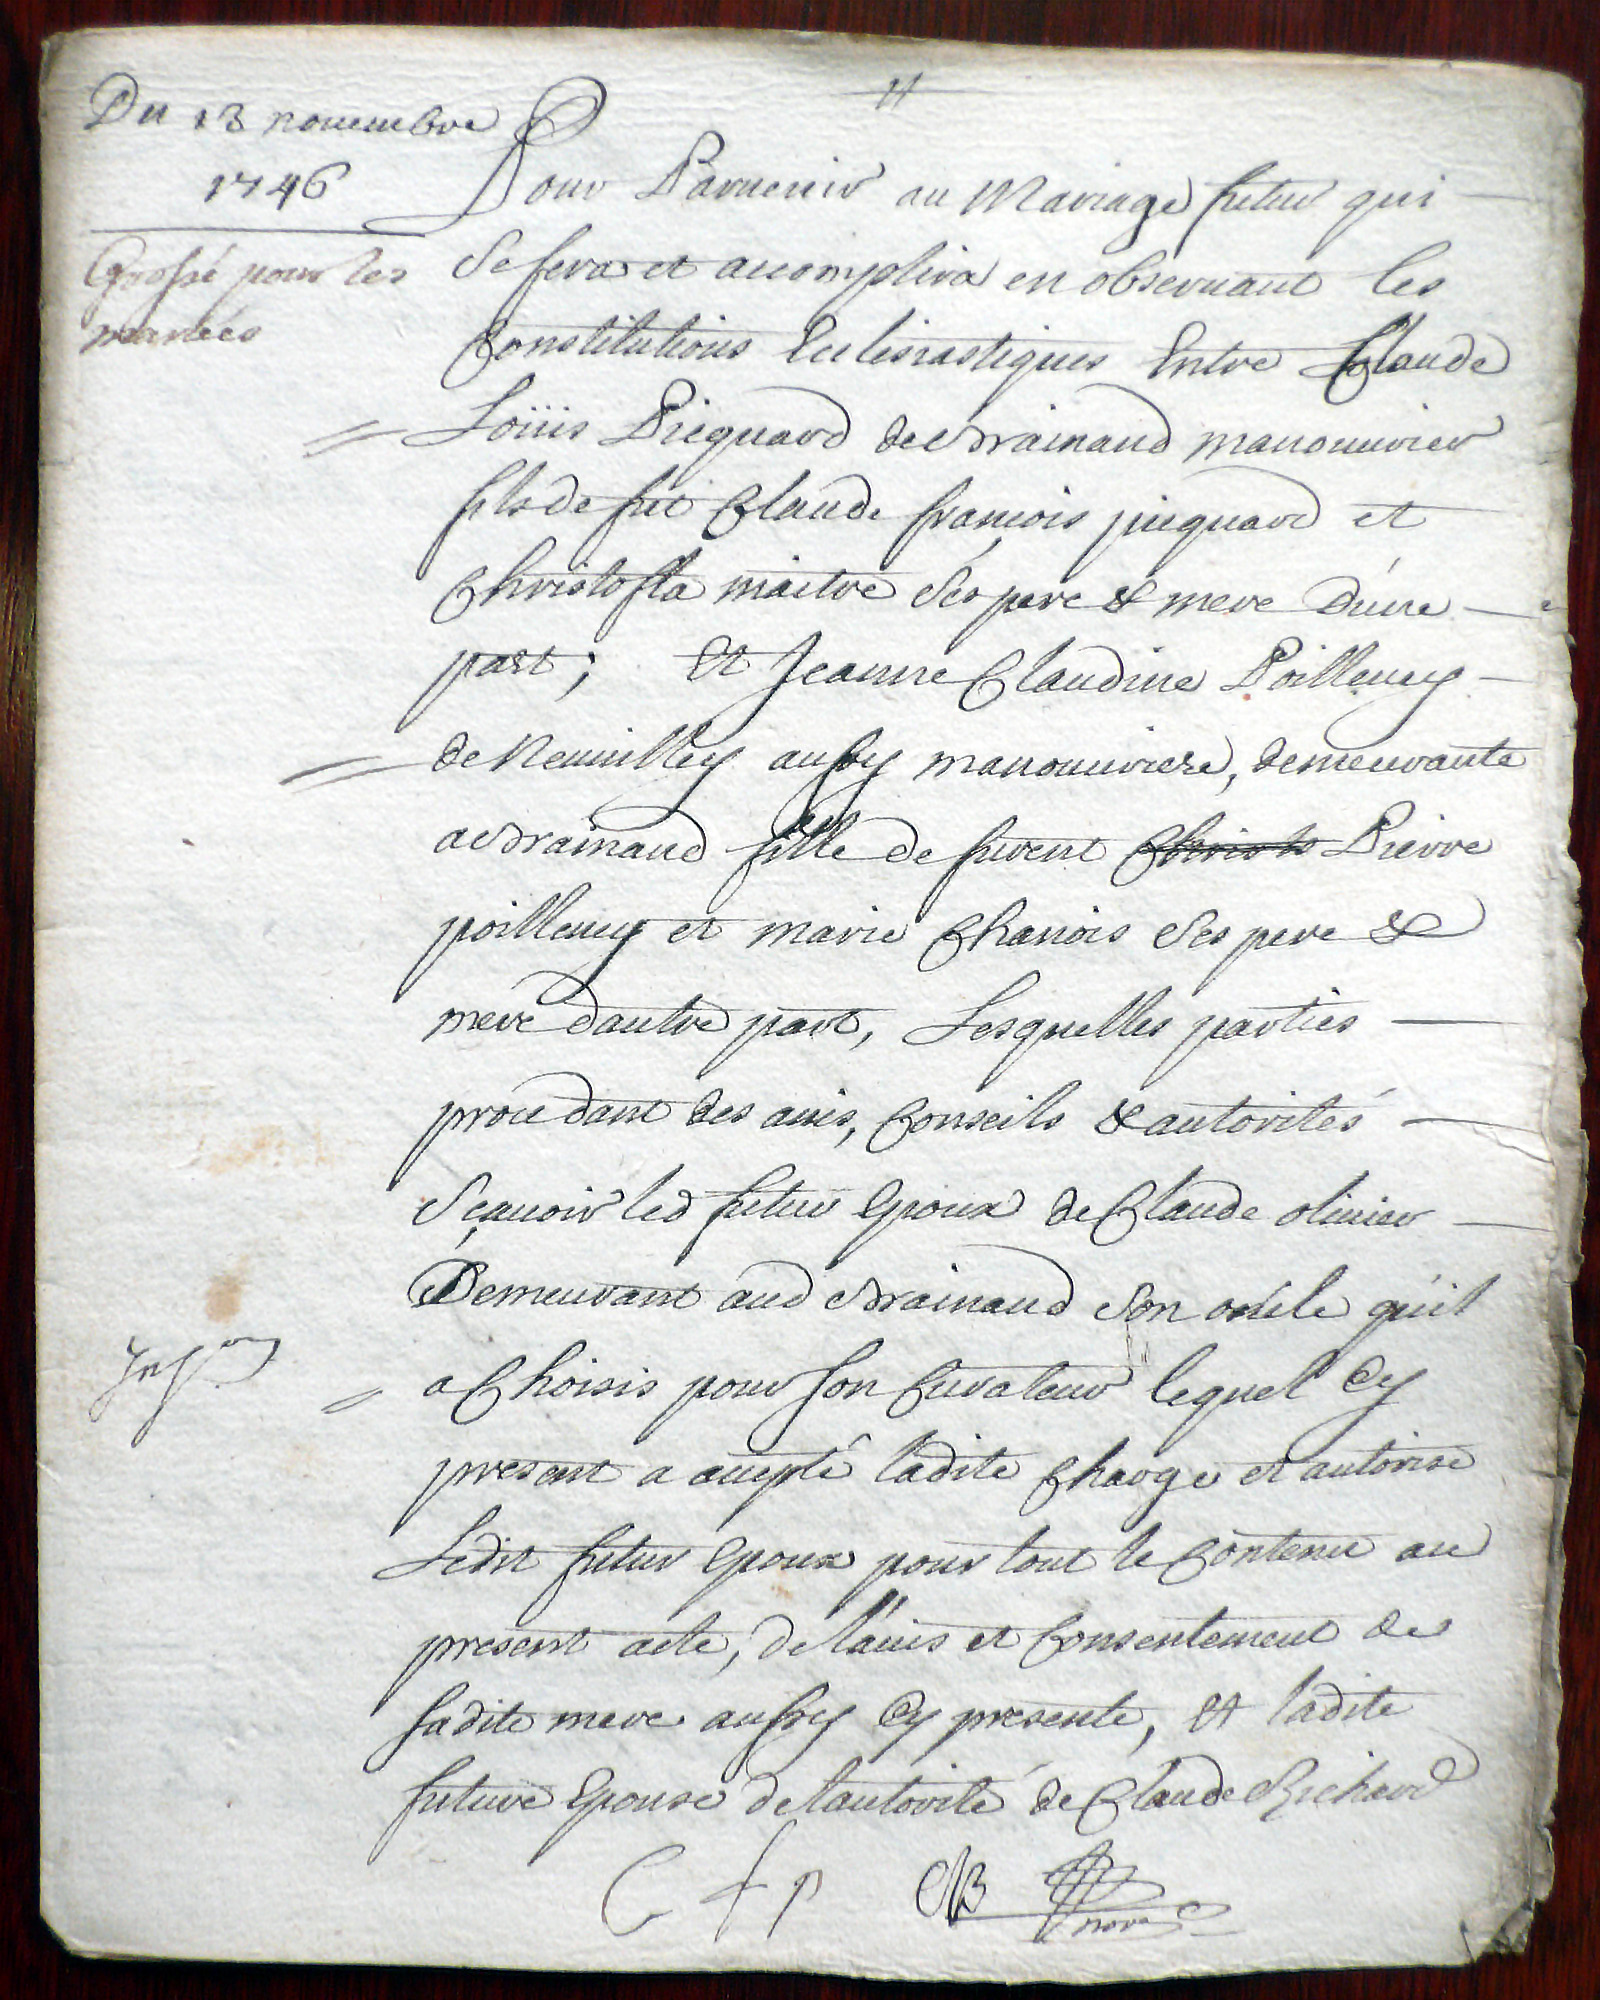 Du 13 novembre
1746
Grossé pour les
mariés
Pour Parvenir au Mariage futur qui
Se fera et accomplira en observant les
Constitutions Eclesiastiques Entre Claude
Loüis Picquard de mainaud manouvrier
fils de fut Claude françois picquard et
Christofla maitre Ses pere & mere d'une
part; Et Jeanne Claudine Poilleney
de Neuvilley aussy manouvriere, demeurante
fille de furent Pierre
poilleney et marie Chanois Ses pere &
mere d'autre part, Lesquelles parties
procedant des avis, Conseils & autorités
Sçavoir led futur Epoux de Claude olivier
Demeurant aud Son oncle qu'il
a Choisis pour son Curateur lequel Cy
present a accepté ladite Charge et autorise
Ledit futur Epoux pour tout le Contenu au
present acte, de l'avis et Consentement de
sadite mere aussy Cy presente, Et ladite
future Epouse de l'autorité de Claude Richard
C f p